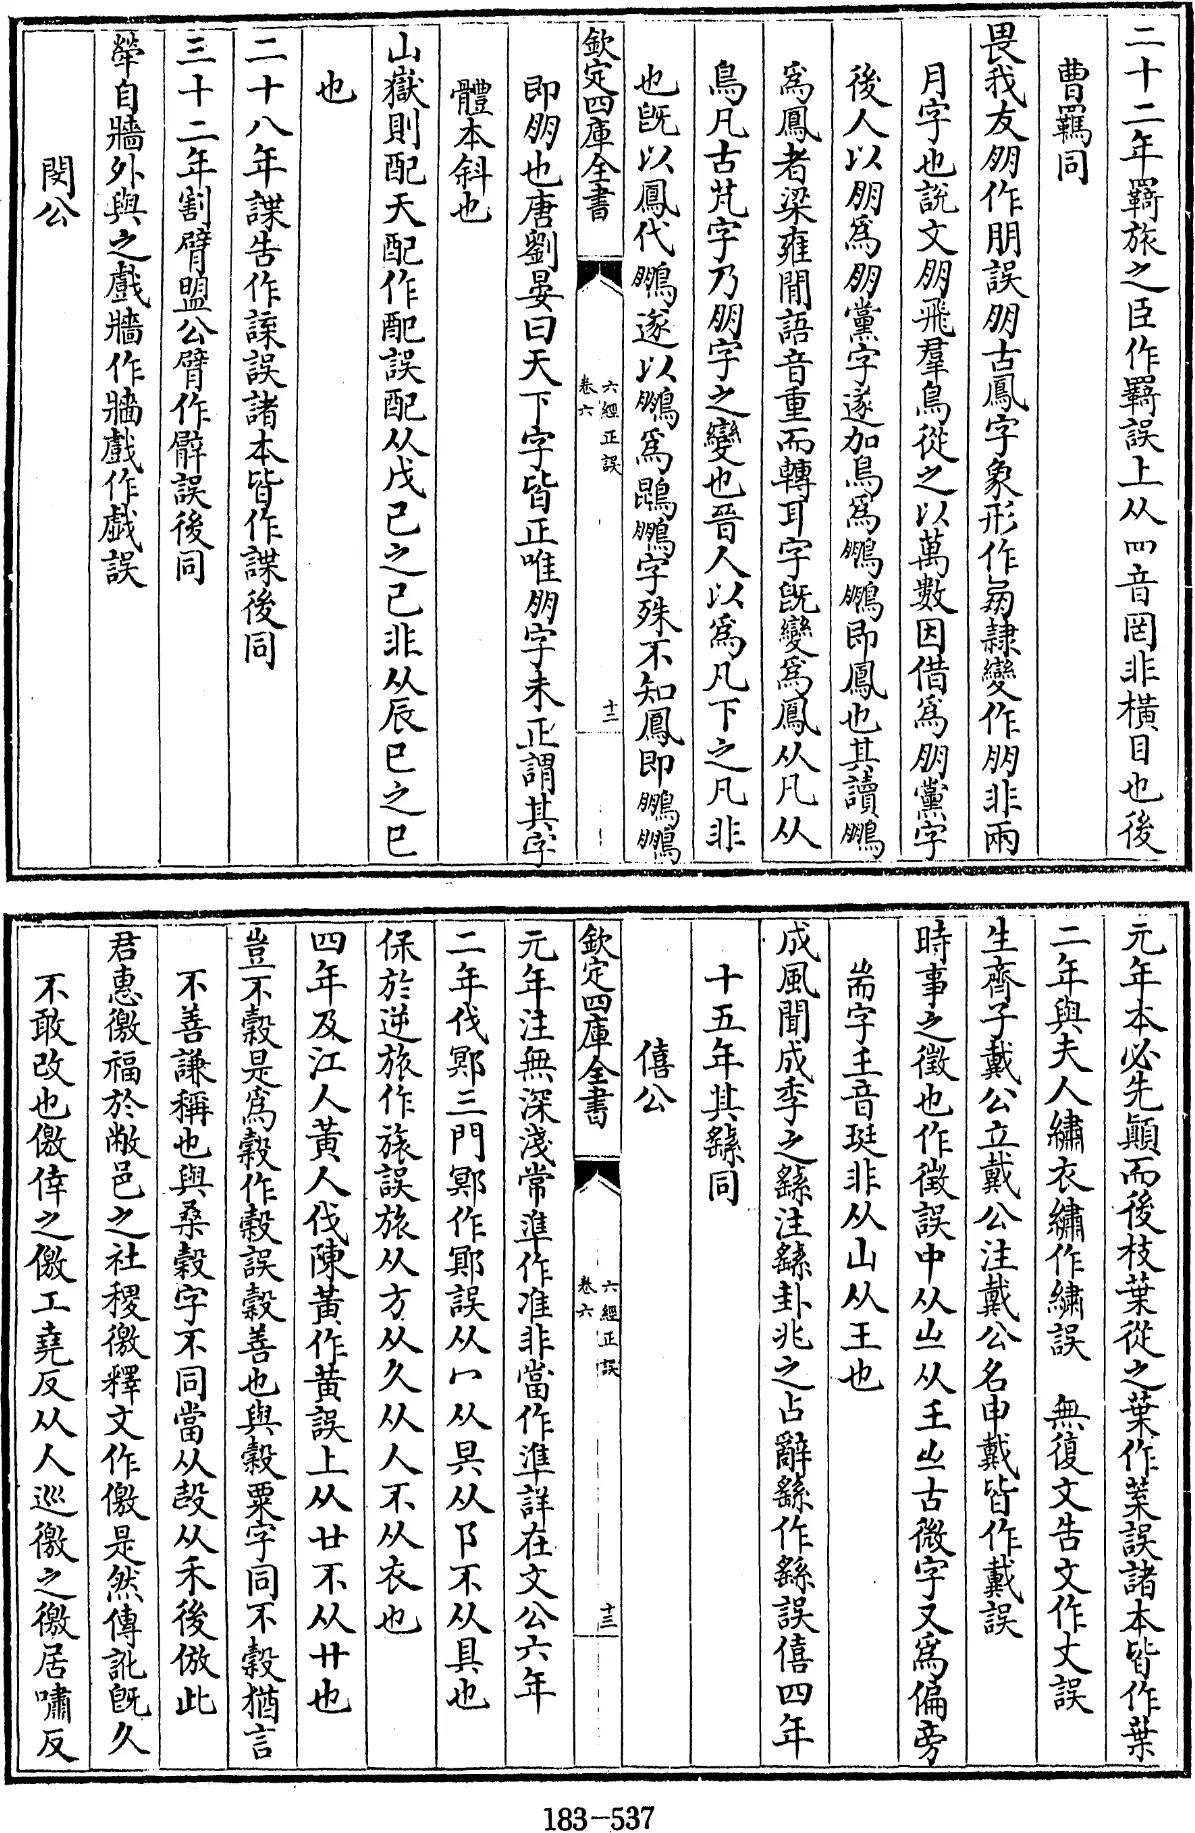 二十二年羇旅之臣作羇誤上从罒音罔非橫目也後
曹羈同
畏我友朋作朋誤朋古鳳字象形作𠓥隷變作朋非兩
月字也說文朋飛羣鳥從之以萬數因借爲朋黨字
後人以朋爲朋黨字遂加鳥爲鵬鵬即鳳也其讀鵬
爲鳳者梁雍閒語音重而轉耳字旣變爲鳳从凡从
鳥凡古芃字乃朋字之變也晉人以爲凡下之凡非
也旣以鳳代鵬遂以鵬爲鵾鵬字殊不知鳳即鵬鵬
欽定四庫全書
六經正誤
卷六
十二
即朋也唐劉晏曰天下字皆正唯朋字未正謂其字
體本斜也
山嶽則配天配作配誤配从戊己之己非从辰巳之巳
也
二十八年諜告作諜誤諸本皆作諜後同
三十二年割臂盟公臂作臂誤後同
犖自牆外與之戲牆作牆戲作戱誤
閔公
元年本必先顚而後枝葉從之葉作葉誤諸本皆作葉
二年與夫人繡衣繡作繡誤 無復文告文作丈誤
生齊子戴公立戴公注戴公名申戴皆作戴誤
時事之徵也作徴誤中从㞢从王㞢古微字又爲偏旁
耑字王音珽非从山从王也
成風聞成季之繇注繇卦兆之占辭繇作繇誤僖四年
十五年其繇同
僖公
欽定四庫全書
六經正誤
卷六
十三
元年注無深淺常準作准非當作準詳在文公六年
二年伐鄍三門鄍作鄍誤从冖从昗从阝不从具也
保於逆旅作旅誤旅从方从久从人不从衣也
四年及江人黃人伐陳黃作黄誤上从廿不从廾也
豈不穀是爲穀作穀誤穀善也與穀粟字同不穀猶言
不善謙稱也與桑穀字不同當从殼从禾後倣此
君惠徼福於敝邑之社稷徼釋文作儌是然傳訛旣久
不敢改也儌倖之儌工堯反从人巡徼之徼居嘯反
183-537